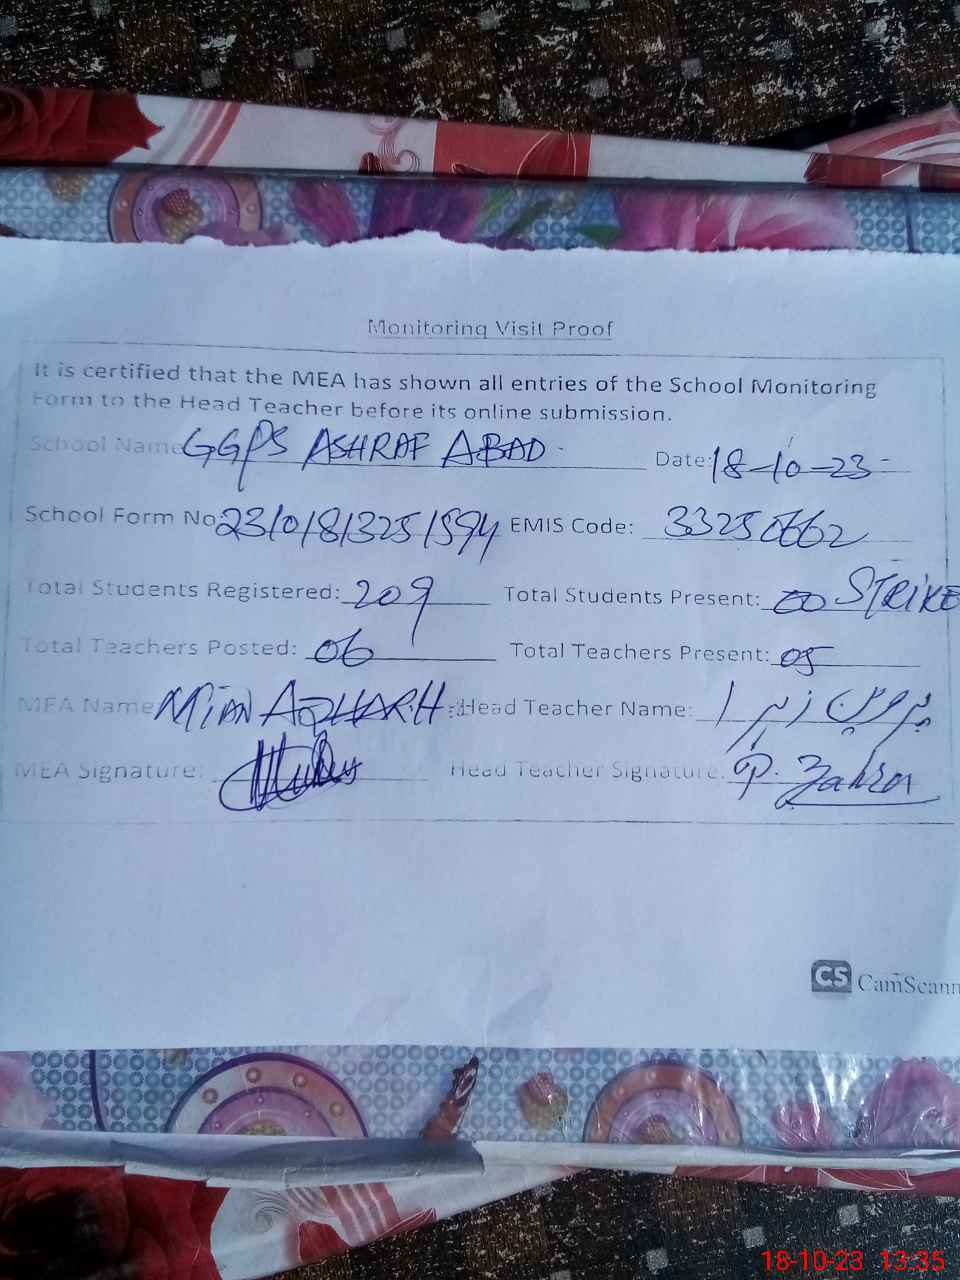 Monitoring Visit Proof
It is certified that the MEA has shown all entries of the School Monitoring
Form to the Head Teacher before its online submission.
School Name GGPS ASHRAF ABAD Date: 18-10-23
School Form No 23101813251594 EMIS Code: 33250662
Total Students Registered: 209 Total Students Present: 00 STRIKE
Total Teachers Posted: 06 Total Teachers Present: 05
MEA Name MIAN AZHAR H. Head Teacher Name: پروین زہرا
MEA Signature: Head Teacher Signature. P. Zahra
CS CamScann
18-10-23 13:35